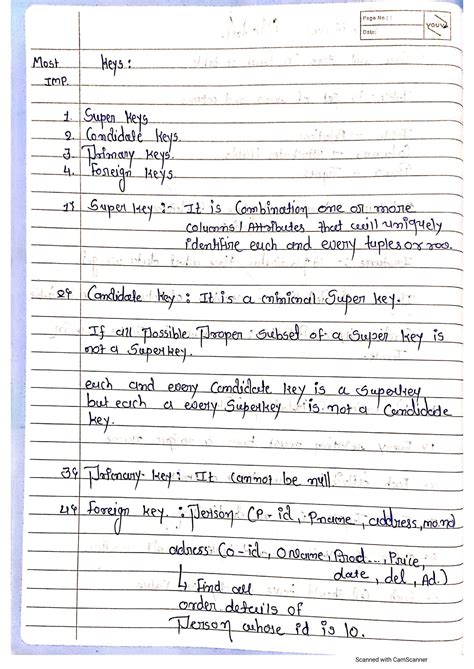 Page No.:
Date:
YOUVA
Most Keys :
IMP.
1. Super Keys
2. Candidate Keys.
3. Primary Keys.
4. Foreign Keys
1) Super Key :- It is Combination one or more
columns / Attributes that will uniquely
identifire each and every tuples or roo.
2) Candidate Key : It is a minimal Super Key.
If all possible Proper Subset of a Super Key is
not a Superkey.
each and every Candidate key is a Superkey
but each a every Superkey is not a Candidate
Key.
3) Primary Key :- It cannot be null
4) Foreign Key : Person (P-id, Pname, address, mo.no)
(o-id, Price,
date, del, Ad.)
↳ Find all
order details of
Person whose id is 10.
Scanned with CamScanner